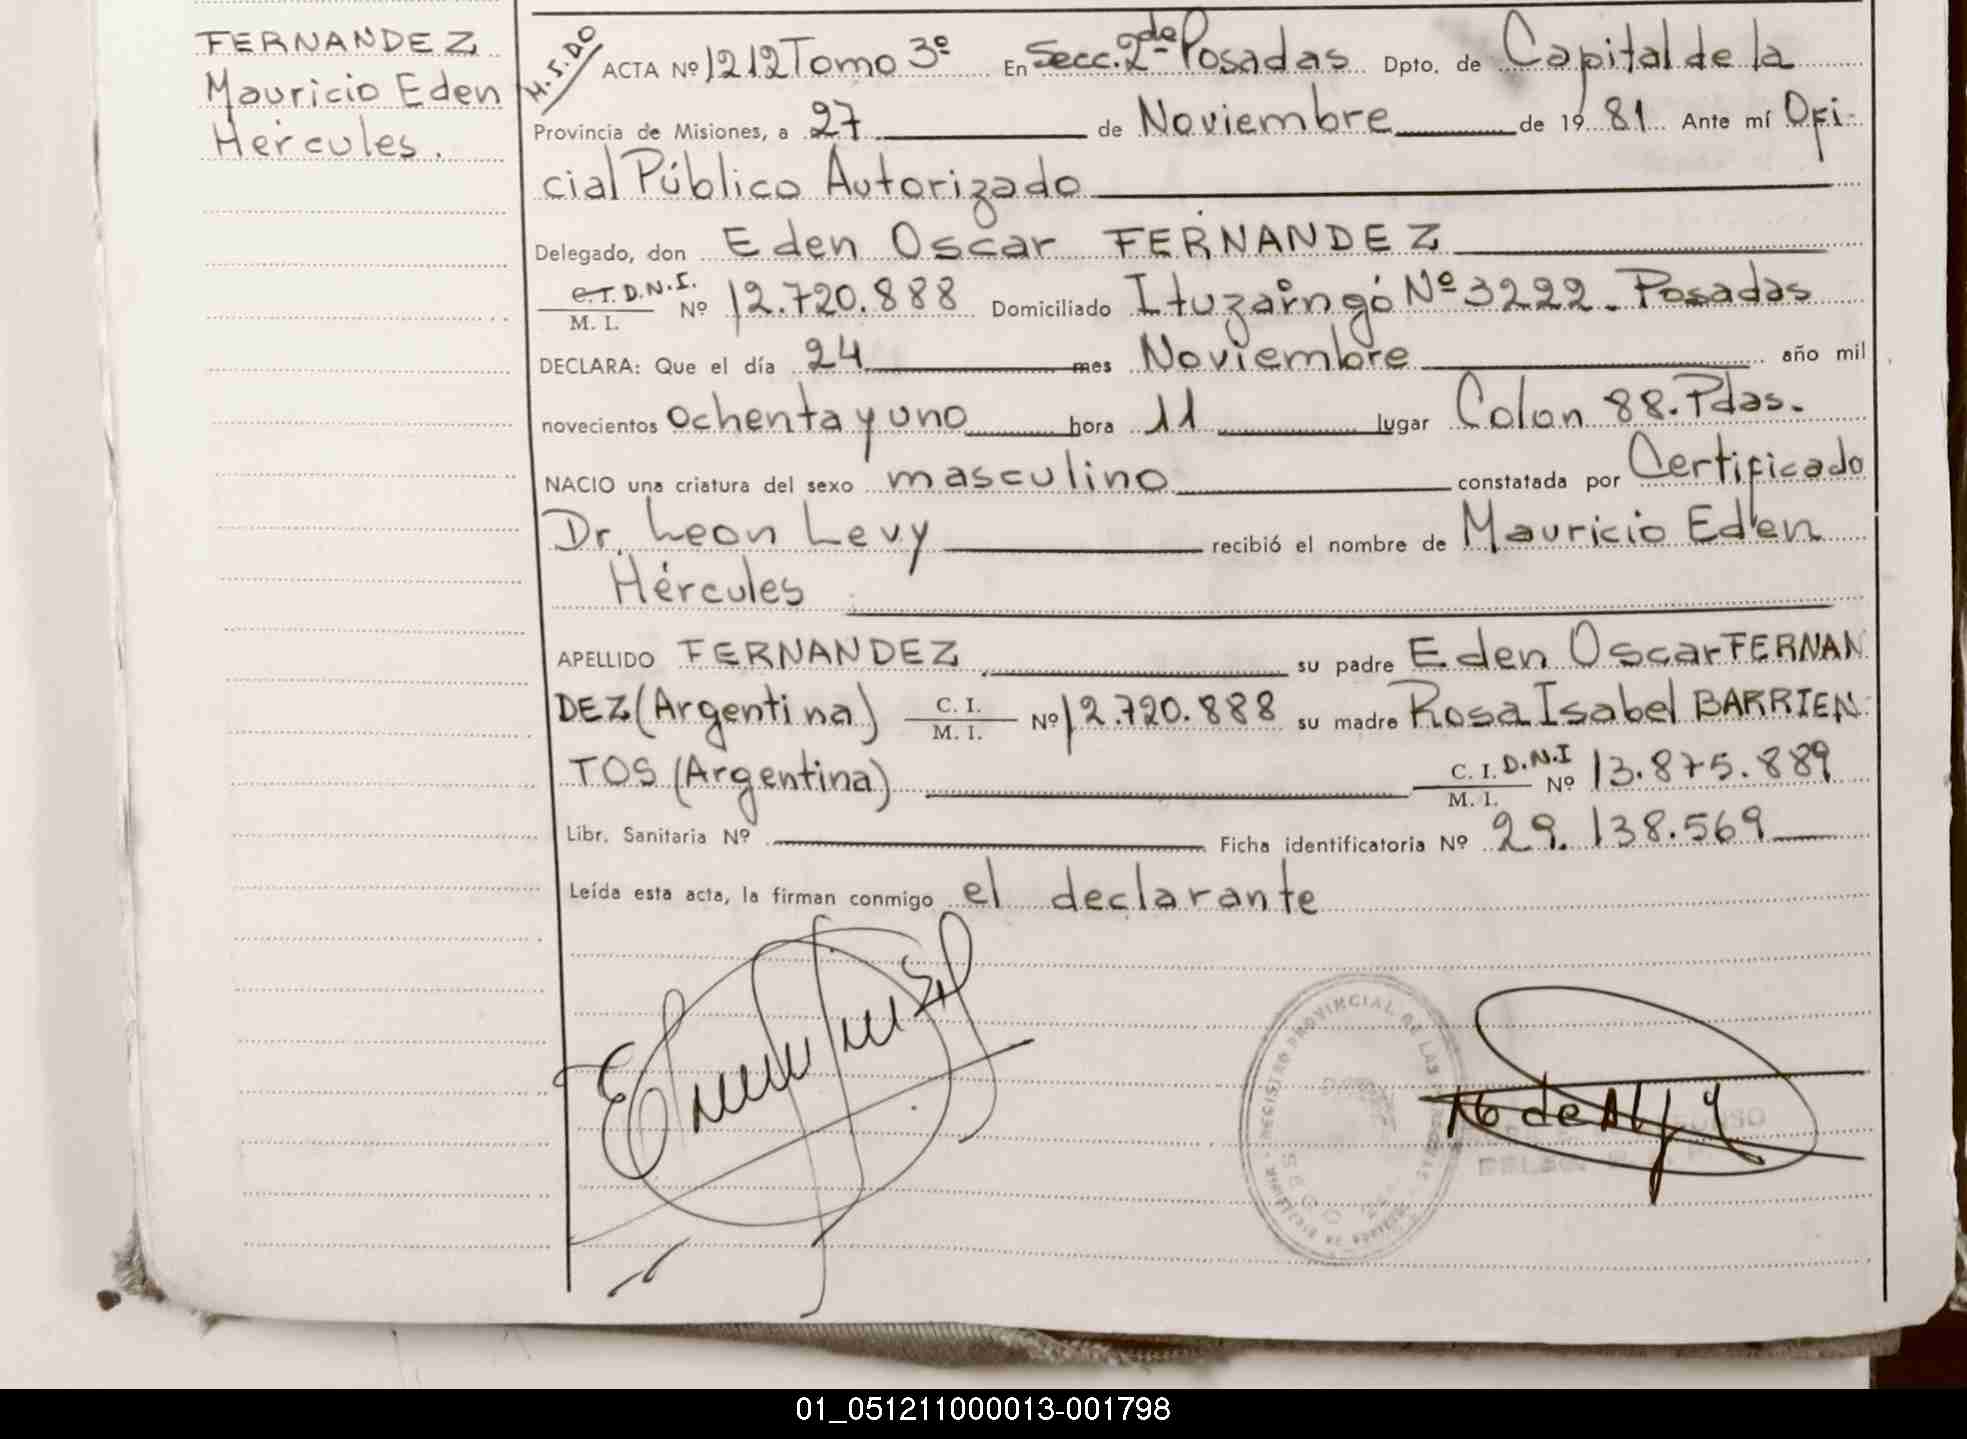 FERNANDEZ
Mauricio Eden
Hércules.
M.I.DO
ACTA Nº 1212 Tomo 3º En Secc. 2da Posadas Dpto. de Capital de la
Provincia de Misiones, a 27 de Noviembre de 1981 Ante mí Ofi-
cial Público Autorizado
Delegado, don Eden Oscar FERNANDEZ
C.I. D.N.I. Nº 12.720.888 Domiciliado Ituzaingó Nº 3222 - Posadas
M. I.
DECLARA: Que el día 24 mes Noviembre año mil
novecientos ochenta y uno hora 11 lugar Colon 88. Pdas.
NACIO una criatura del sexo masculino constatada por Certificado
Dr. Leon Levy recibió el nombre de Mauricio Eden
Hércules
APELLIDO FERNANDEZ su padre Eden Oscar FERNAN
DEZ (Argentina) C. I. Nº 12.720.888 su madre Rosa Isabel BARRIEN-
M. I.
TOS (Argentina) C. I. D.N.I Nº 13.875.889
M. I.
Libr. Sanitaria Nº Ficha identificatoria Nº 29.138.569
Leída esta acta, la firman conmigo el declarante
REGISTRO PROVINCIAL DE LAS PERSONAS
01_051211000013-001798